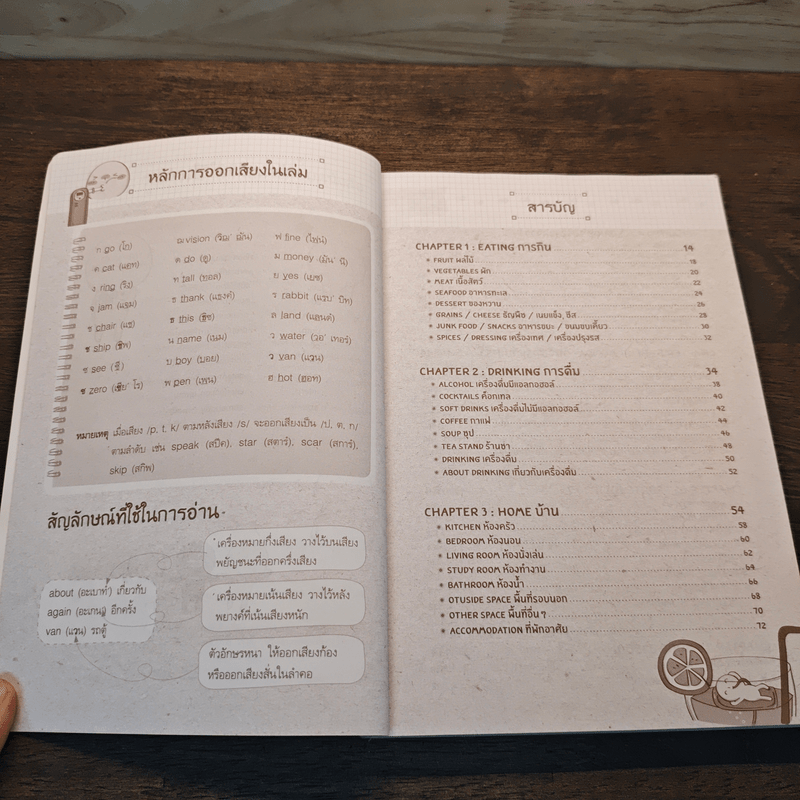 หลักการออกเสียงในเล่ม
ก go (โก)
ค cat (แคท)
ง ring (ริง)
จ jam (แจม)
ช chair (แช)
ช ship (ชิพ)
ซ see (ซี)
ซ zero (เซีย' โร)
ฌ vision (วิฌ' ฌัน)
ด do (ดู)
ท tall (ทอล)
ธ thank (แธงค์)
ธ this (ธิซ)
น name (เนม)
บ boy (บอย)
พ pen (เพน)
ฟ fine (ไฟน์)
ม money (มัน' นี)
ย yes (เยซ)
ร rabbit (แรบ' บิท)
ล land (แลนด์)
ว water (วอ' เทอร์)
ว van (แวน)
ฮ hot (ฮอท)
หมายเหตุ เมื่อเสียง /p, t, k/ ตามหลังเสียง /s/ จะออกเสียงเป็น /ป, ต, ก/
ตามลำดับ เช่น speak (สปีค), star (สตาร์), scar (สการ์),
skip (สกิพ)
สัญลักษณ์ที่ใช้ในการอ่าน
about (อะเบาท์') เกี่ยวกับ
again (อะเกน') อีกครั้ง
van (แวน) รถตู้
เครื่องหมายกึ่งเสียง วางไว้บนเสียง
พยัญชนะที่ออกครึ่งเสียง
' เครื่องหมายเน้นเสียง วางไว้หลัง
พยางค์ที่เน้นเสียงหนัก
ตัวอักษรหนา ให้ออกเสียงก้อง
หรือออกเสียงสั่นในลำคอ
สารบัญ
CHAPTER 1 : EATING การกิน 14
FRUIT ผลไม้ 18
VEGETABLES ผัก 20
MEAT เนื้อสัตว์ 22
SEAFOOD อาหารทะเล 24
DESSERT ของหวาน 26
GRAINS / CHEESE ธัญพืช / เนยแข็ง, ชีส 28
JUNK FOOD / SNACKS อาหารขยะ / ขนมขบเคี้ยว 30
SPICES / DRESSING เครื่องเทศ / เครื่องปรุงรส 32
CHAPTER 2 : DRINKING การดื่ม 34
ALCOHOL เครื่องดื่มมีแอลกอฮอล์ 38
COCKTAILS ค็อกเทล 40
SOFT DRINKS เครื่องดื่มไม่มีแอลกอฮอล์ 42
COFFEE กาแฟ 44
SOUP ซุป 46
TEA STAND ร้านชา 48
DRINKING เครื่องดื่ม 50
ABOUT DRINKING เกี่ยวกับเครื่องดื่ม 52
CHAPTER 3 : HOME บ้าน 54
KITCHEN ห้องครัว 58
BEDROOM ห้องนอน 60
LIVING ROOM ห้องนั่งเล่น 62
STUDY ROOM ห้องทำงาน 64
BATHROOM ห้องน้ำ 66
OTUSIDE SPACE พื้นที่รอบนอก 68
OTHER SPACE พื้นที่อื่น ๆ 70
ACCOMMODATION ที่พักอาศัย 72